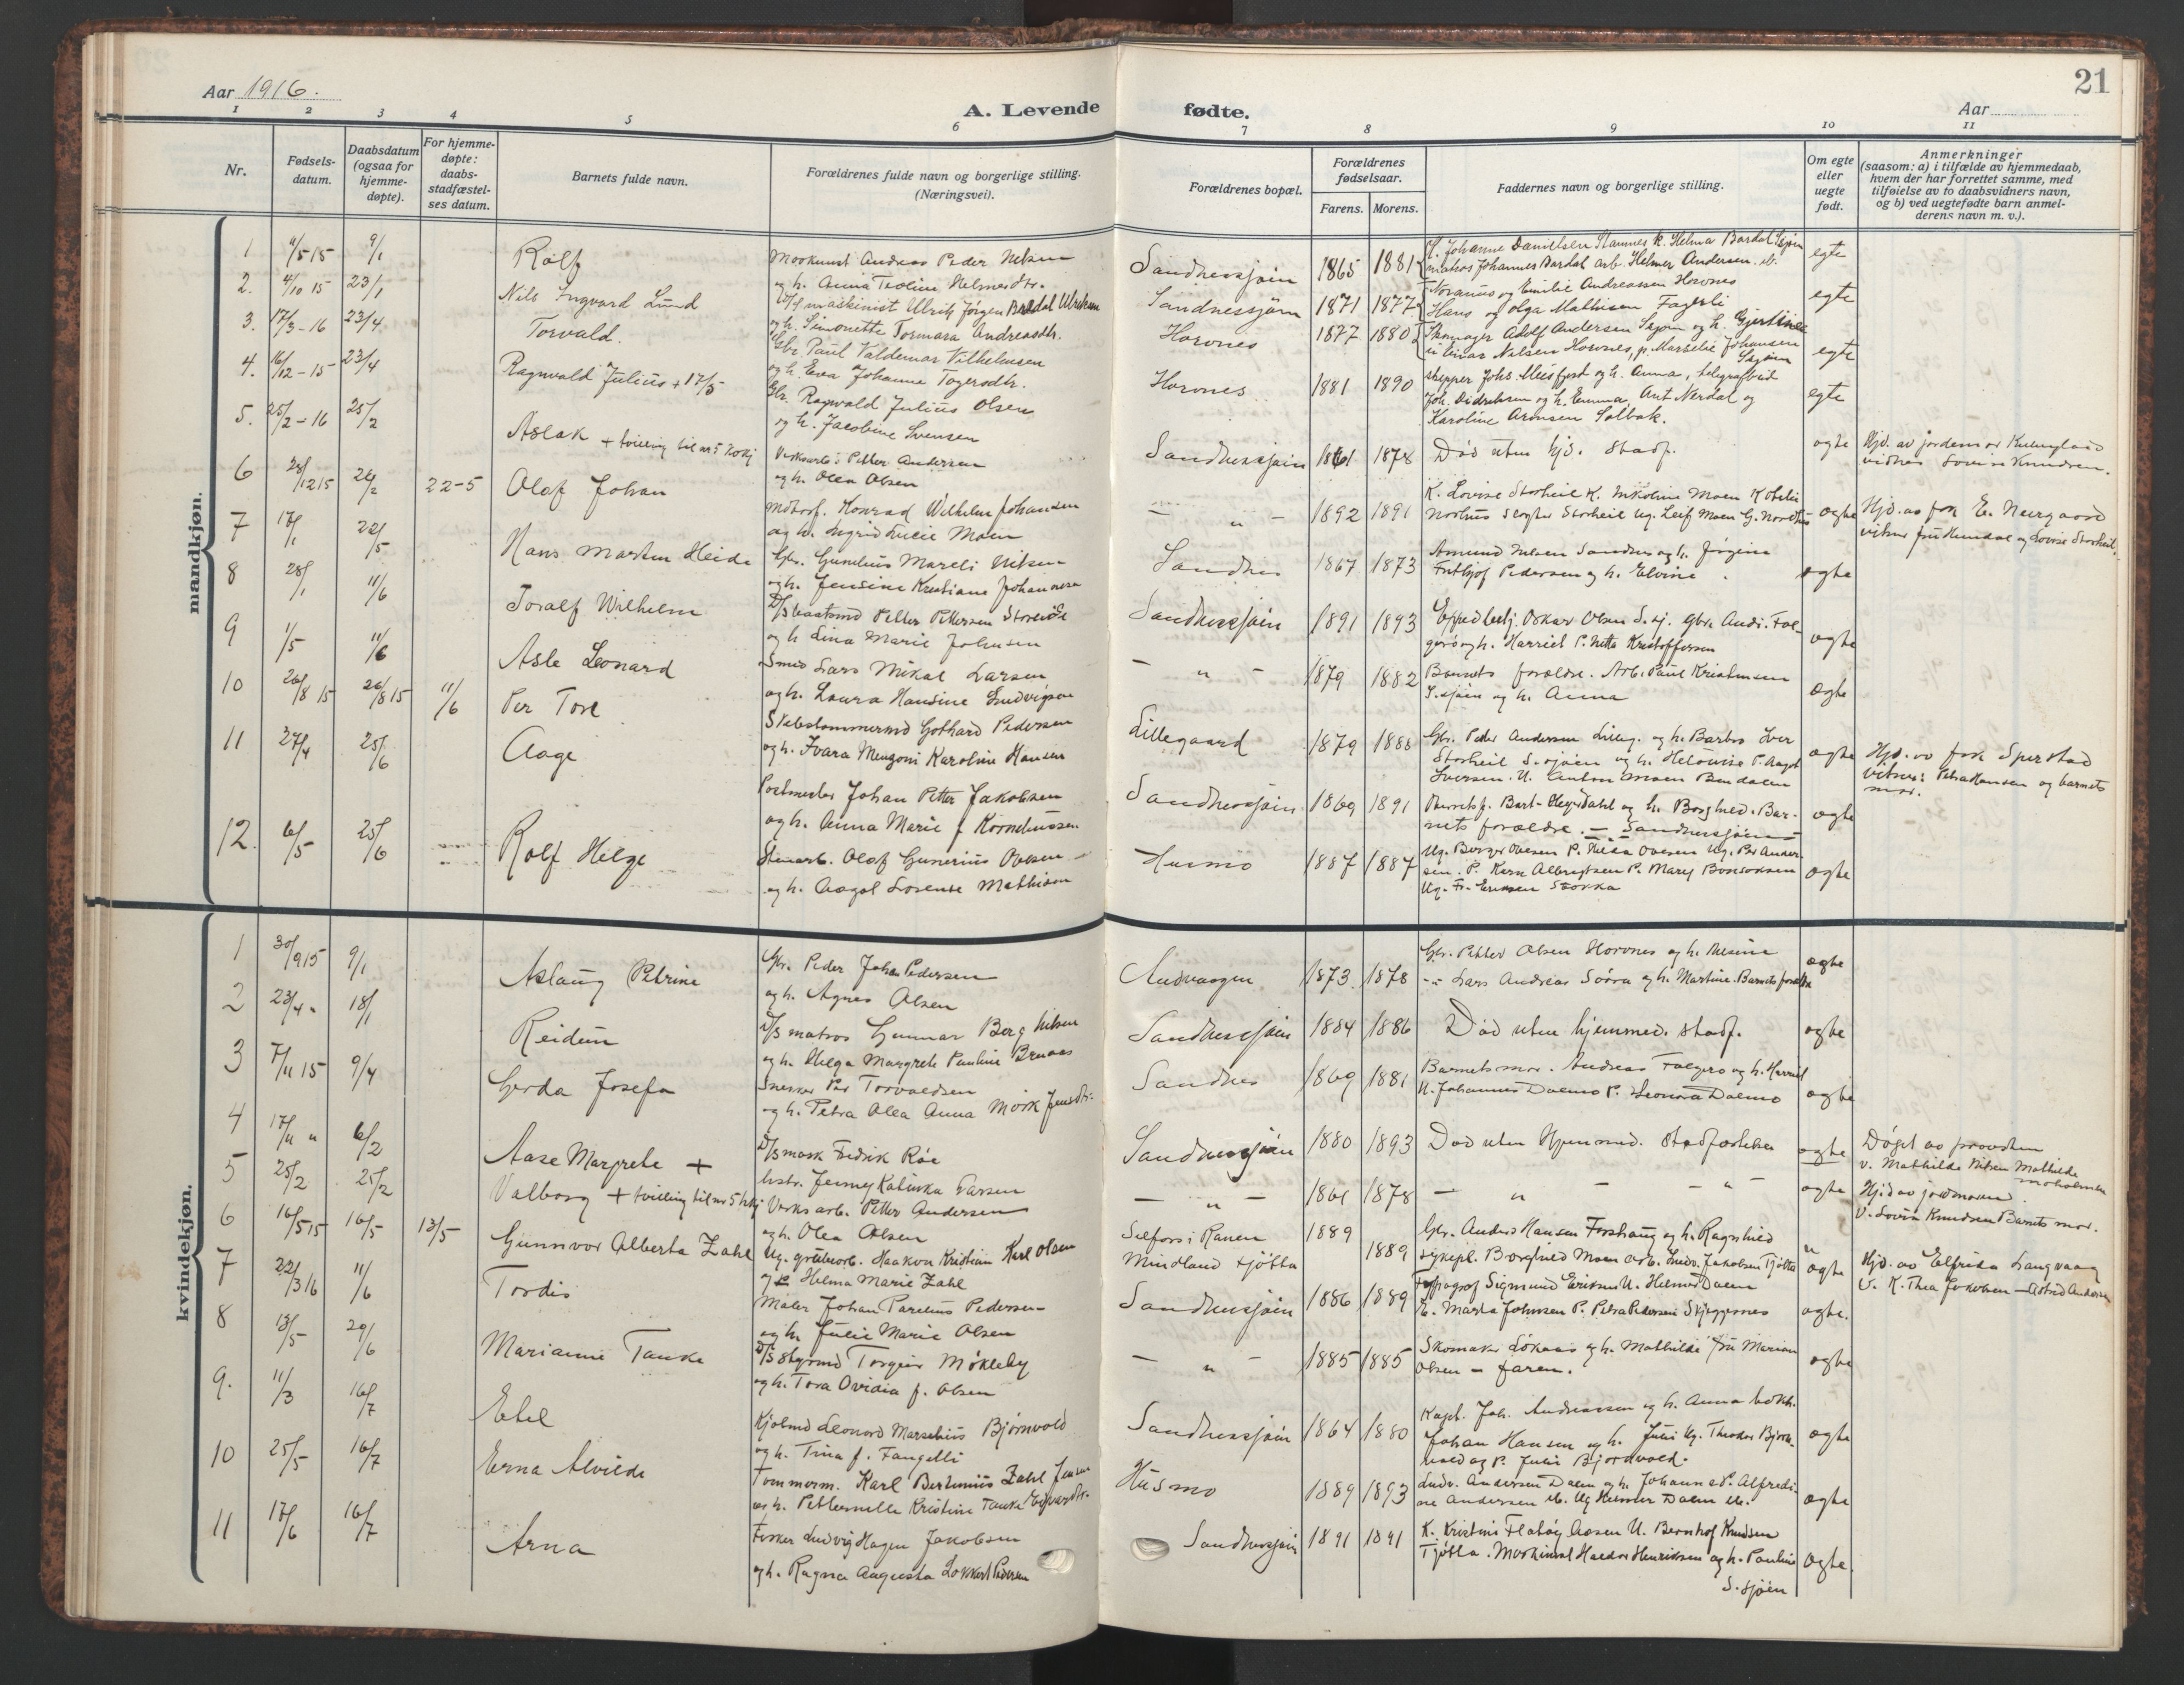 21
Aar 1916.
A. Levende fødte.
Aar
1 2 3 4 5 6 7 8 9 10 11
Nr.
Fødsels-
datum.
Daabsdatum
(ogsaa for
hjemme-
døpte).
For hjemme-
døpte:
daabs-
stadfæstel-
ses datum.
Barnets fulde navn.
Forældrenes fulde navn og borgerlige stilling.
(Næringsvei).
Forældrenes bopæl.
Forældrenes
fødselsaar.
Farens. Morens.
Faddernes navn og borgerlige stilling.
Om egte
eller
uegte
født.
Anmerkninger
(saasom: a) i tilfælde av hjemmedaab,
hvem der har forrettet samme, med
tilføielse av to daabsvidners navn,
og b) ved uegtefødte barn anmel-
derens navn m. v.).
mandkjøn.
1 9/1 Rolf
Andreas Peder Nilsen
og h. Anna Teoline Helmersdtr.
Sandnessjøen 1865 1881
Johanne Danielsen Stamnes k. Helma Bardal
matros Johannes Bardal arb. Helmer Andersen
egte
2. 4/10 15 23/1 Nils Ingvard Lund
maskinist Ulrik Jørgen Bardal Ulriksen
og h. Simonette Tormara Andreasdtr.
Sandnessjøen 1871 1877
og Emilie Andreassen Horvnes
Hans og Olga Mathisen Fagerli
egte
3. 17/3-16 23/4 Torvald.
Gbr. Paul Valdemar Vilhelmsen
og h. Eva Johanne
Horvnes 1877 1880
Skomager Adolf Andersen Sisjøen og h. Gjertine
Einar Nilsen Horvnes, p. Johansen
egte
4. 16/12-15 23/4 Ragnvald Julius + 17/5
Gbr. Ragnvald Julius Olsen
og h. Jacobine Svensen
Horvnes 1881 1890
skipper Johs. Meisfjord og h. Anna, telegrafbud
Joh. Didriksen og h. Emma, Ant. Nerdal og
Karoline Aronsen Solbak.
egte
5. 25/2-16 25/2 Aslak + tvilling til nr 5
Verksarb. Petter Andersen
og h. Olea Olsen
Sandnessjøen 1861 1878 Død uten hjd. stadf.
egte
Hjd. av jordemor
vidner Lovise Knudsen.
6 28/12 15 26/2 22-5 Olaf Johan
Motorf. Konrad Wilhelm Johansen
og h. Ingrid Lucie Moen
— " — 1892 1891
K. Lovise Storheil K. Moen K
Storheil Ug. Leif Moen G.
egte
Hjd. av frk E. Neergaard
vitner fru og Lovise Storheil.
7 17/1 22/5 Hans Morten Heide
Gbr. Gunelius Mareli Nilsen
og h. Jensine Kristiane
Sandnes 1867 1873
Amund Nilsen Sandnes og h. Jørgine
Fritjof Pedersen og h. Elvine
egte
8 28/1 11/6 Toralf Wilhelm
D/S Petter Pettersen
og h. Lina Marie Johnsen
Sandnessjøen 1891 1893
Oskar Olsen S.sj. gbr. Andr. Fal-
gerø og h. Harriet P. Netta Kristoffersen
egte
9 1/5 11/6 Asle Leonard
Smed Lars Mikal Larsen
og h. Laura Hansine Ludvigsen
— " — 1879 1882
Barnets forældre. Arb. Paul Kristensen
S.sjøen og h. Anna
egte
10 26/8 15 26/8 15 11/6 Per Tore
Skibstømmermd Gothard Pedersen
og h. Ivara Karoline Hansen
Lillegaard 1879 1888
Gbr. Peder Andersen og h. Barbro Iver
Storheil S.sjøen og h. P. Aagot
Iversen. U. Anton Moen
egte
Hjd. av frk Sperstad
vitner: Petra Hansen og barnets
mor.
11 27/4 25/6 Aage
Postmester Johan Petter Jakobsen
og h. Anna Marie f. Korneliussen
Sandnessjøen 1869 1891
og h. Borghild. Bar-
nets forældre. — Sandnessjøen —
egte
12. 6/5 25/6 Rolf Helge
Stenarb. Olaf Gunerius Ovesen
og h. Aagot Lorense Mathisen
Husmo 1887 1887
Ug. Birger Ovesen P. Hilda Ovesen Ug. Per Ander-
sen. P. Karn Albrigtsen P. Mary
Ug. Fr. Eriksen Stokka
egte
kvindekjøn.
1 30/9 15 9/1 Aslaug Petrine
Gbr. Peder Johan Pedersen
og h. Agnes Olsen
Andvaagen 1873. 1878
Gbr. Petter Olsen Horvnes og h.
-"- Lars Andreas Søvra og h. Martine. Barnets forældre
egte
2 23/4 " 18/1 Reidun
D/S matros Gunnar Berg Nilsen
og h. Helga Margrete Pauline
Sandnessjøen 1884 1886 Død uten hjemmed. stadf.
egte
3 7/11 15 9/4 Gerda Josefa
Snekker Per Torvaldsen
og h. Petra Olea Anna Mørk Jensdtr.
Sandnes 1869 1881
Barnets mor. Andreas Falgerø og h. Harriet
U. Johannes Dalmo P. Leonora Dalmo
egte
4 17/11 " 6/2 Aase Margrete +
D/S mask Fredrik Røe
hstr. Jenny Katinka Larsen
Sandnessjøen 1880 1893 Død uten hjemmed. stadfæstelse
egte
Døpt av provsten
v. Mathilde Nilsen Mathilde
Moholmen
5 25/2 25/2 Valborg + tvilling til nr 5
Verksarb. Petter Andersen
og h. Olea Olsen
— " — 1861 1878 — " — — " —
egte
Hjd av jordmoren
v. Lovise Knudsen Barnets mor.
6 16/5 15 16/5 13/5 Gunnvor Alberta Zahl
Ug. grubearb. Haakon Kristian Karl Olsen
og p Helma Marie Zahl
Selfors i Ranen 1889
Mindland Tjøtta 1889
Gbr. Anders Hansen Forshaug og h. Ragnhild
sykepl. Borghild Moen Arb. Ludv. Jakobsen Tjøtta
u
egte
Hjd. av Elfrida Langvaag
v. K. Thea Jakobsen — Astrid Andersen
7 22/3 16 11/6 Tordis
Maler Johan Parelius Pedersen
og h. Julie Marie Olsen
Sandnessjøen 1886 1889
Typograf Sigmund Eriksen U. Helmer Dalen
E. Marta Johnsen P. Petra Pedersen Skjeggesnes
egte.
8 13/5 29/6 Marianne Tanke
D/S styrmd Torgeir Møkleby
og h. Tora Ovidia f. Olsen
— " — 1885 1885
Skomaker Løkaas og h. Mathilde fru Marian
Olsen — faren.
egte
9. 11/3 16/7 Etel
Kjølmd Leonard Marselius Bjørnvold
og h. Tina f. Fangelli
Sandnessjøen 1864 1880
Kapt. Joh. Andreassen og h. Anna
Johan Hansen og h. Julie Ug. Theodor Bjørn-
vold og P. Julie Bjørnvold.
egte
10 25/5 16/7 Erna Alvilde
Tømmerm. Karl Bertinius Zahl Jensen
og h. Petternelle Kristine Tanke
Husmo 1889 1893
Ludv. Andersen Dalen og h. Johanna P. Alfredi-
ne Andersen Ug Helmer Dalen
egte
11 17/6 16/7 Arna
Fisker Ludvig Hagen Jakobsen
og h. Ragna Augusta Lokkert Pedersen
Sandnessjøen 1891 1891
K. Kristine Flatøy U. Bernhof Knudsen
Tjøtta. Maskinist Haldor Henriksen og h. Pauline
S.sjøen
egte.